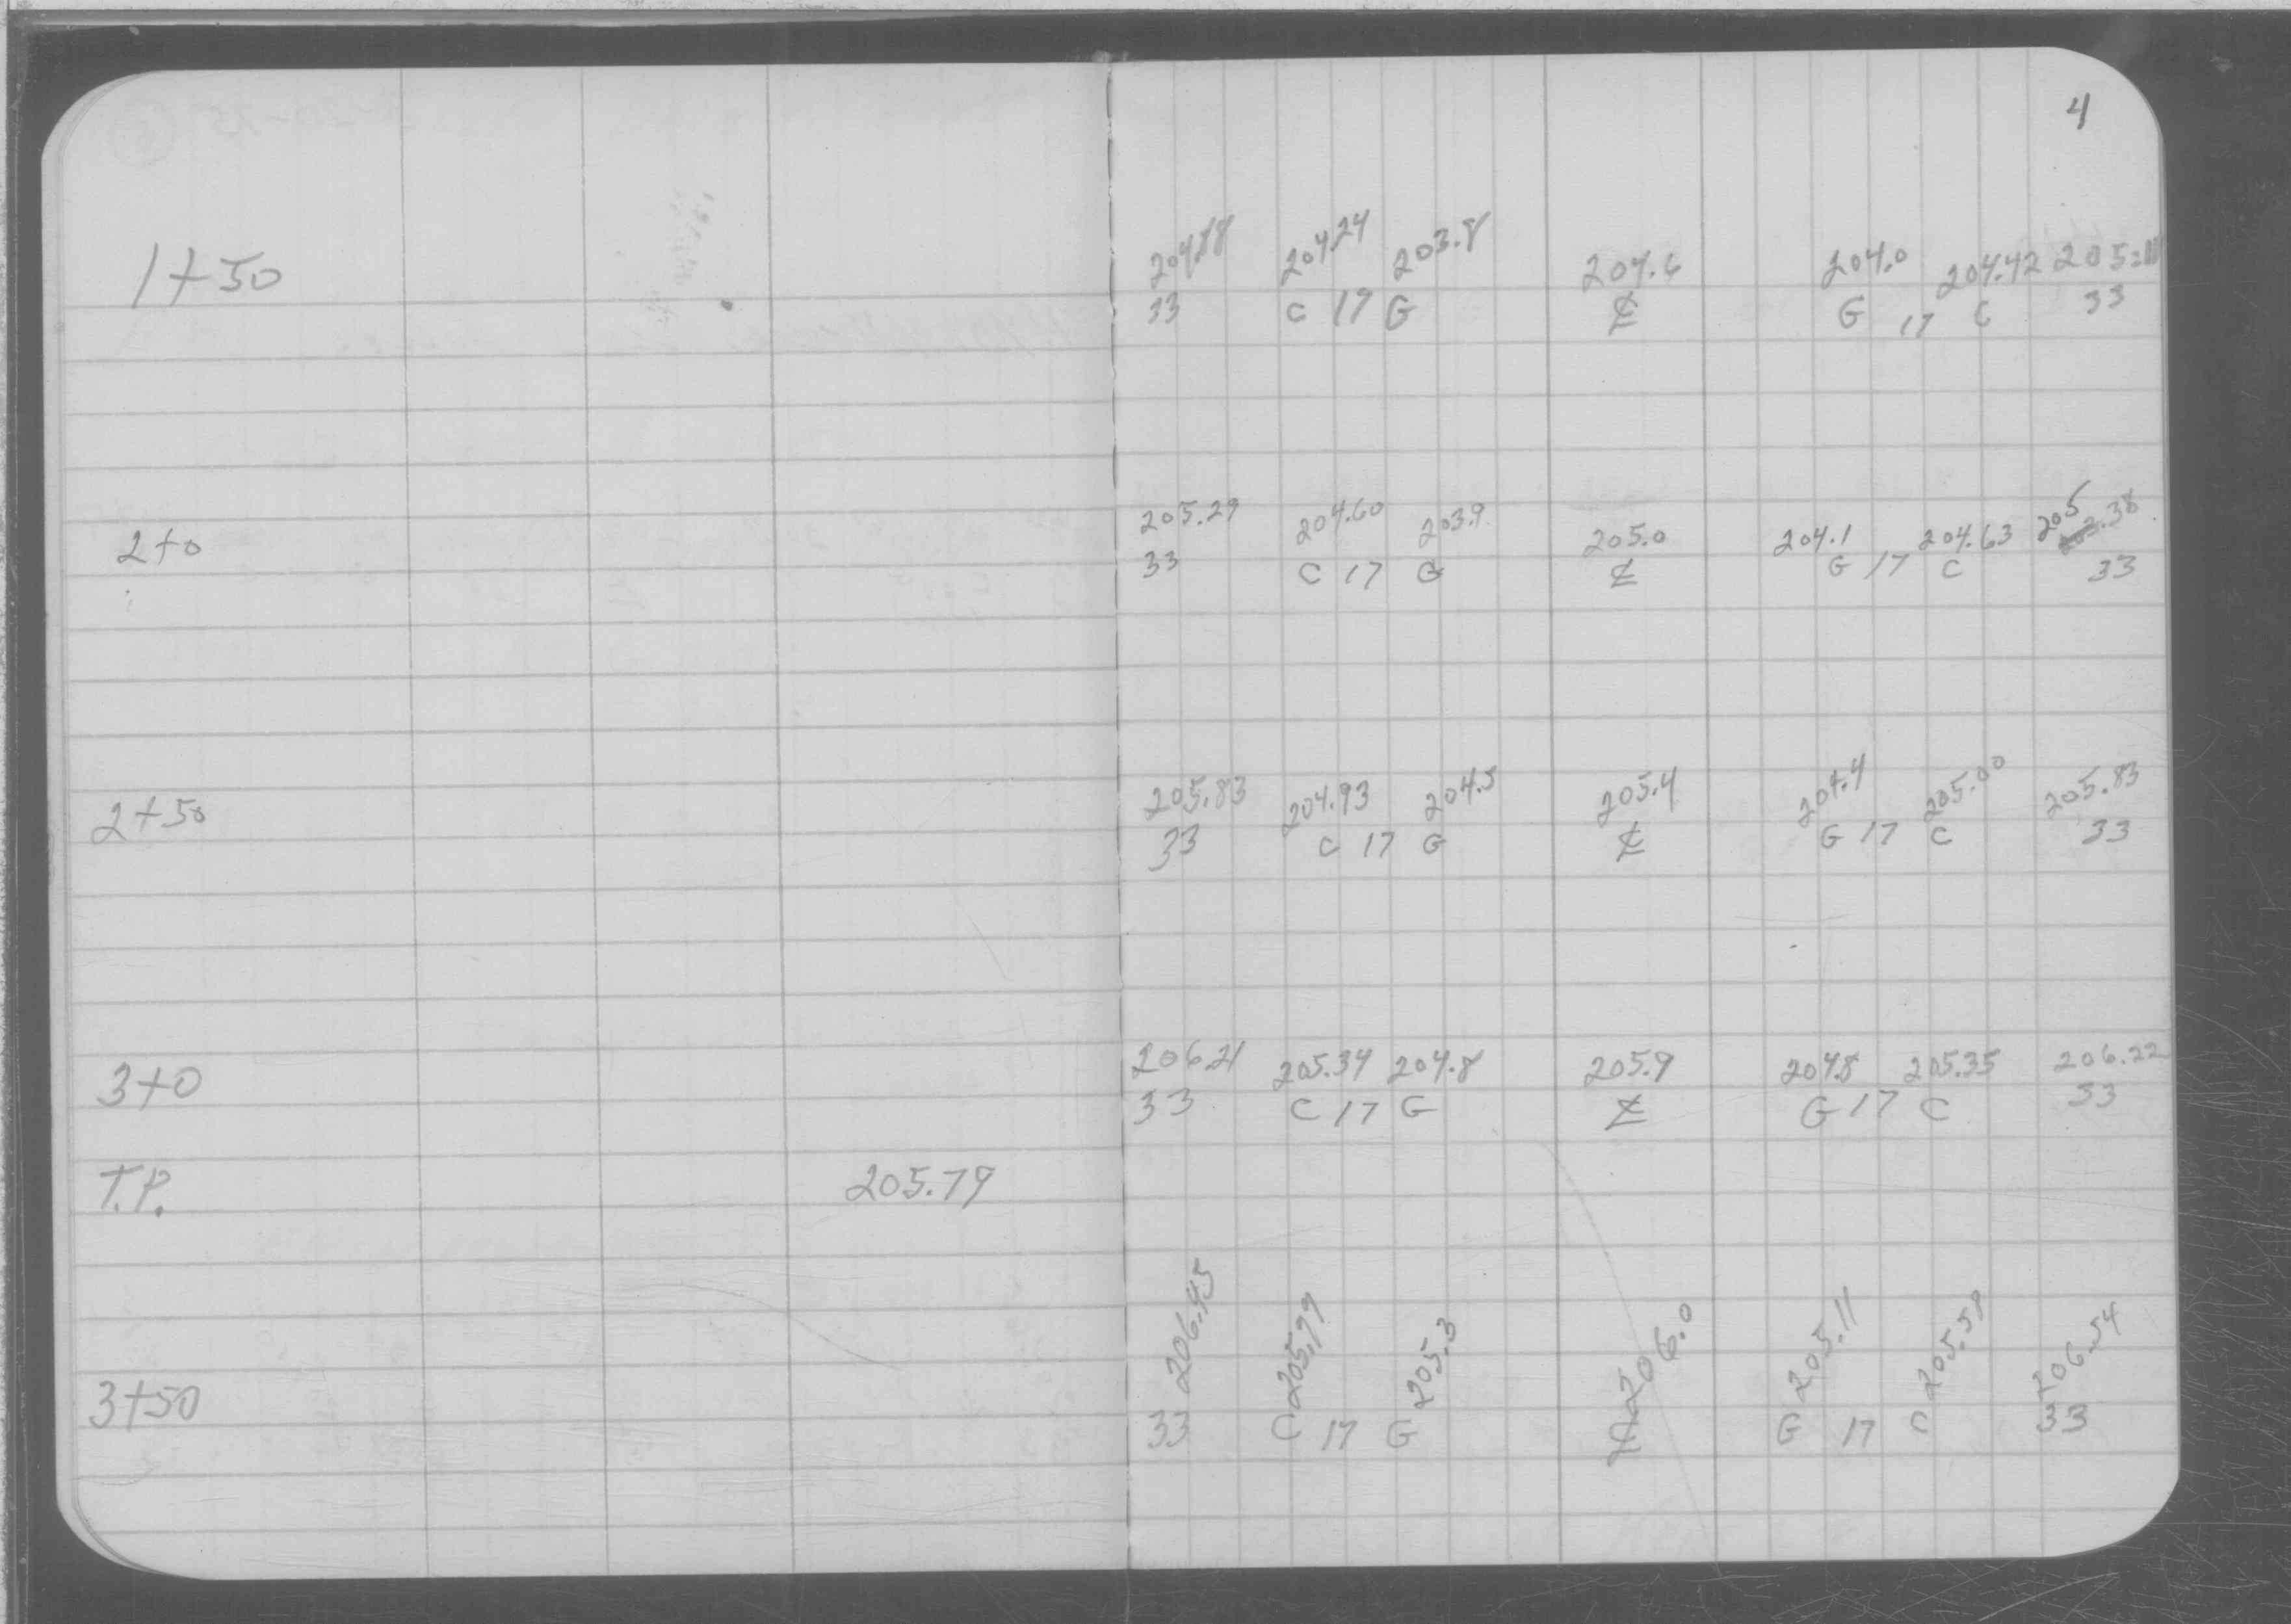 4
204.88 204.24 203.8 204.6 204.0 204.42 205.11
1+50 33 C 17 G ℄ G 17 C 33
205.29 204.60 203.9 205.0 204.1 204.63 205.38
2+0 33 C 17 G ℄ G 17 C 33
205.83 204.93 204.5 205.4 204.4 205.00 205.83
2+50 33 C 17 G ℄ G 17 C 33
206.21 205.34 204.8 205.9 204.8 205.35 206.22
3+0 33 C 17 G ℄ G 17 C 33
T.P. 205.79
206.45 205.79 205.3 206.0 205.11 206.54
3+50 33 C 17 G ℄ G 17 C 33